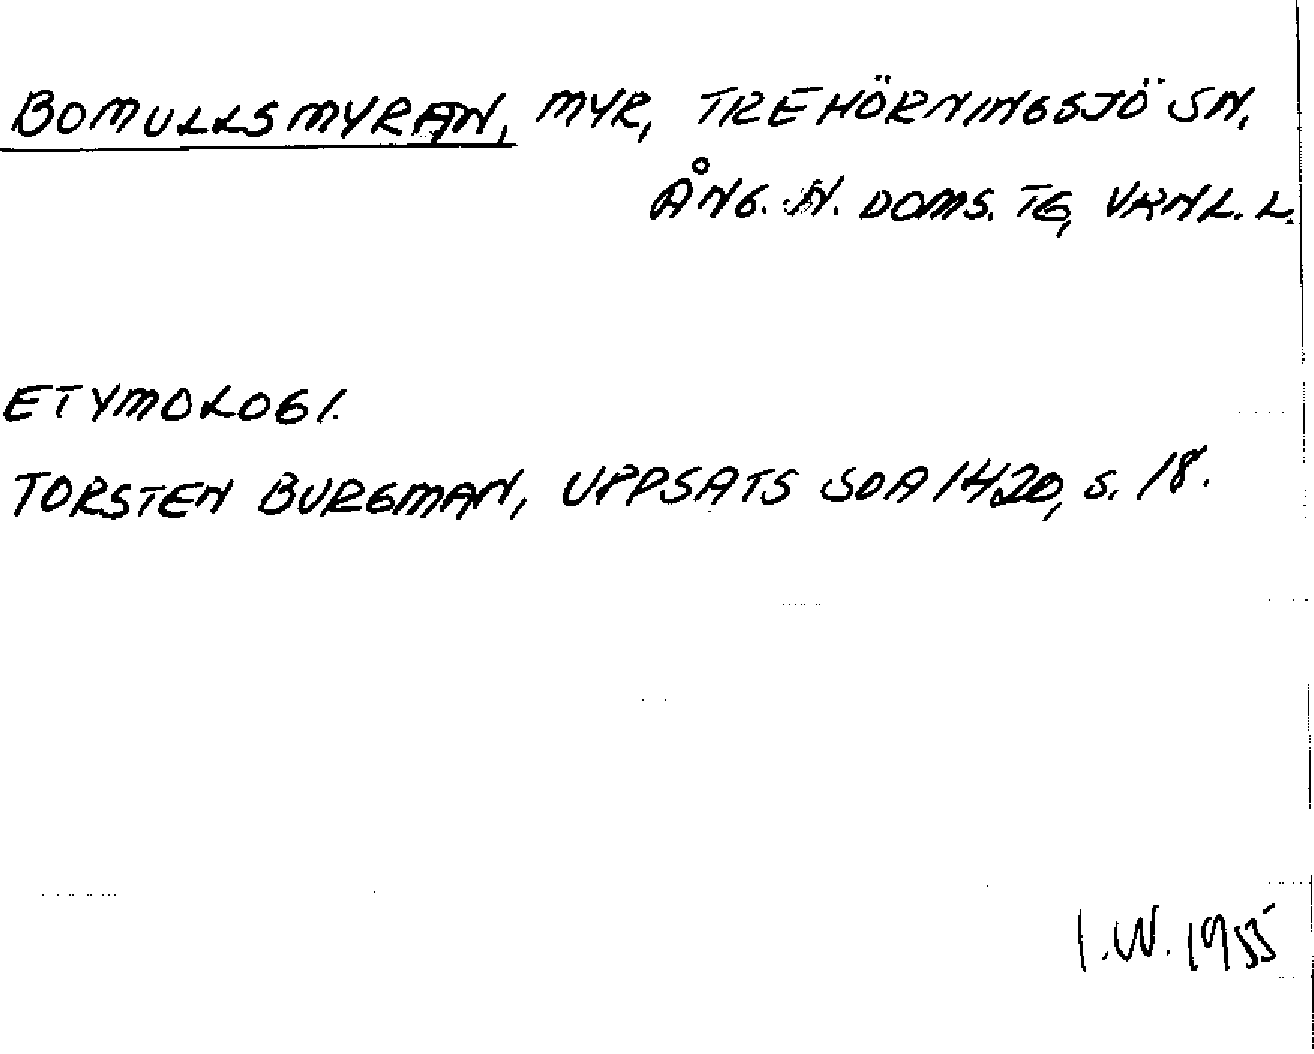 BOMULLSMYRAN, MYR, TREHÖRNINGSJÖ SN,
ÅNG. N. DOMS. TG, VRNL. L.
ETYMOLOGI.
TORSTEN BURGMAN, UPPSATS SOA 1420, S. 18.
I.W. 1955